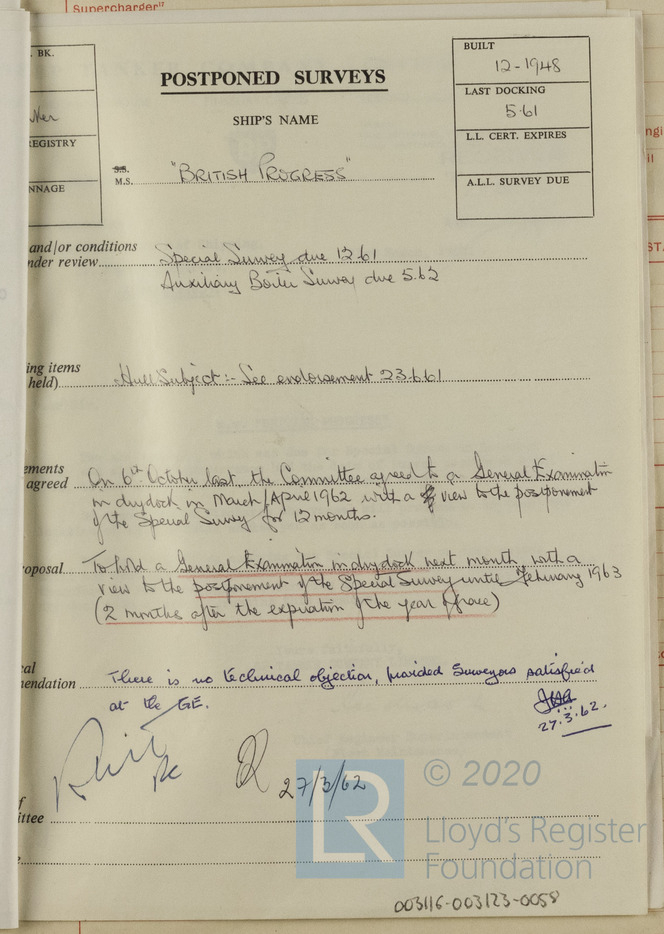 Supercharger"
. BK.
EGISTRY
NNAGE
POSTPONED SURVEYS
SHIP'S NAME
S.S.
M.S. "BRITISH PROGRESS"
BUILT
12-1948
LAST DOCKING
5.61
L.L. CERT. EXPIRES
A.L.L. SURVEY DUE
and/or conditions
nder review Special Survey due 12.61
Auxiliary Boiler Survey due 5.62
ing items
held) Hull Subject:- See endorsement 23.6.61
ements
agreed On 6th October last the Committee agreed to a General Examination
in drydock in March/April 1962 with a view to the postponement
of the Special Survey for 12 months.
oposal To hold a General Examination in drydock next month with a
view to the postponement of the Special Survey until February 1963
(2 months after the expiration of the year of grace)
cal
endation There is no technical objection, provided Surveyors satisfied
at the GE.
27.3.62.
27/3/62
f
ittee
LR
© 2020
Lloyd's Register
Foundation
003116-003123-0058